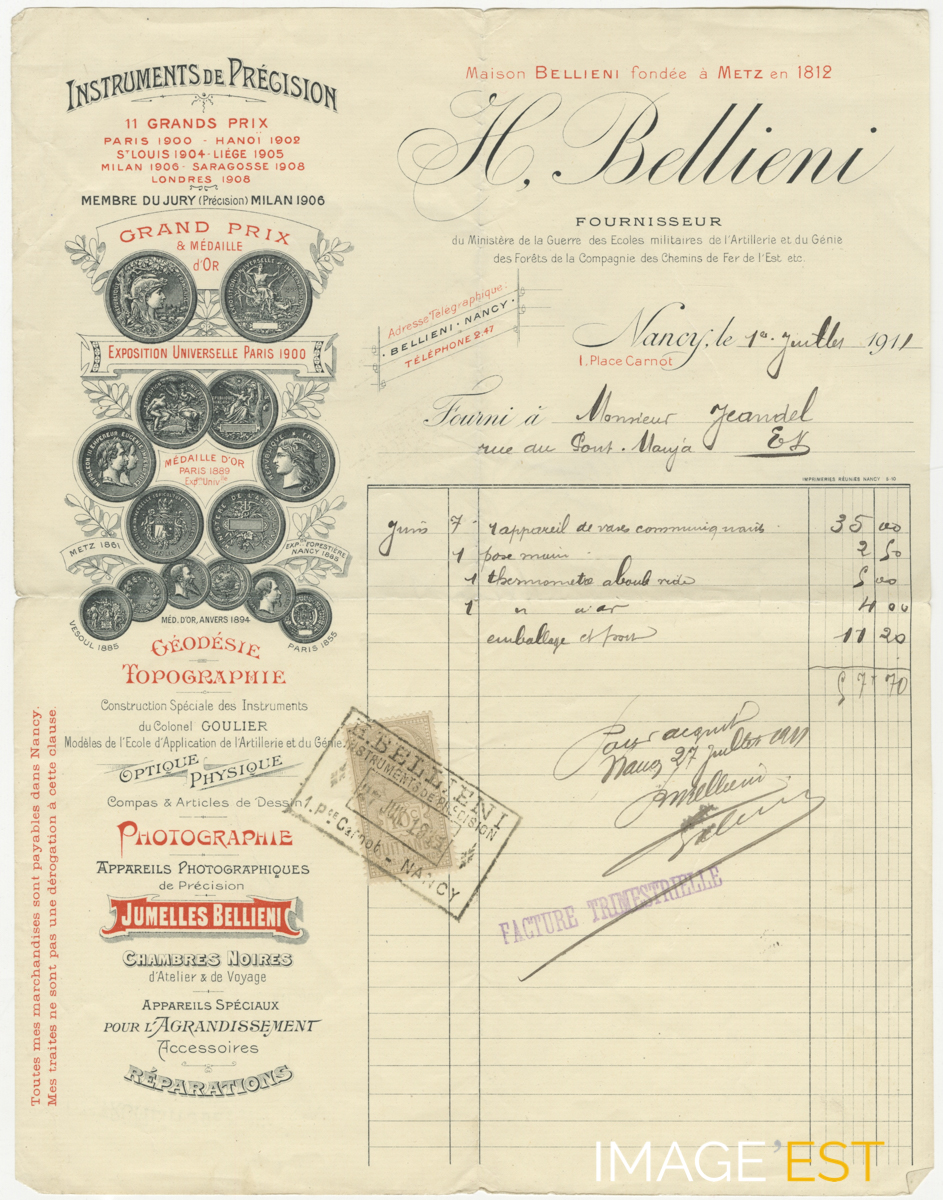 INSTRUMENTS DE PRÉCISION
11 GRANDS PRIX
PARIS 1900 - HANOÏ 1902
ST LOUIS 1904 - LIÉGE 1905
MILAN 1906 - SARAGOSSE 1908
LONDRES 1908
MEMBRE DU JURY (Précision) MILAN 1906
GRAND PRIX
& MÉDAILLE
d'OR
EXPOSITION UNIVERSELLE PARIS 1900
MÉDAILLE D'OR
PARIS 1889
Expon Univlle
METZ 1861
EXPon FORESTIÈRE
NANCY 1885
MÉD. D'OR, ANVERS 1894
VESOUL 1885
PARIS 1855
GÉODÉSIE
TOPOGRAPHIE
Construction Spéciale des Instruments
du Colonel GOULIER
Modèles de l'Ecole d'Application de l'Artillerie et du Génie
OPTIQUE
PHYSIQUE
Compas & Articles de Dessin
PHOTOGRAPHIE
APPAREILS PHOTOGRAPHIQUES
de Précision
JUMELLES BELLIENI
CHAMBRES NOIRES
d'Atelier & de Voyage
APPAREILS SPÉCIAUX
POUR L'AGRANDISSEMENT
Accessoires
RÉPARATIONS
Toutes mes marchandises sont payables dans Nancy.
Mes traites ne sont pas une dérogation à cette clause.
Maison BELLIENI fondée à METZ en 1812
H. Bellieni
FOURNISSEUR
du Ministère de la Guerre des Ecoles militaires de l'Artillerie et du Génie
des Forêts de la Compagnie des Chemins de Fer de l'Est etc.
Adresse Télégraphique:
BELLIENI · NANCY
TÉLÉPHONE 2.47
Nancy, le 1er Juillet 1911
1. Place Carnot
Fourni à Monsieur Jeandel
rue du Pont-Mouja
IMPRIMERIES RÉUNIES NANCY 3-10
Juin 7 1 appareil de vases communiquants 35 00
1 2 50
1 thermometre 5 00
1 " " 4 00
emballage et port 11 20
57 70
Pour acquit
Nancy 27 Juillet 1911
Bellieni
H. BELLIENI
INSTRUMENTS DE PRÉCISION
1. Pce Carnot - NANCY
FACTURE TRIMESTRIELLE
IMAGE EST